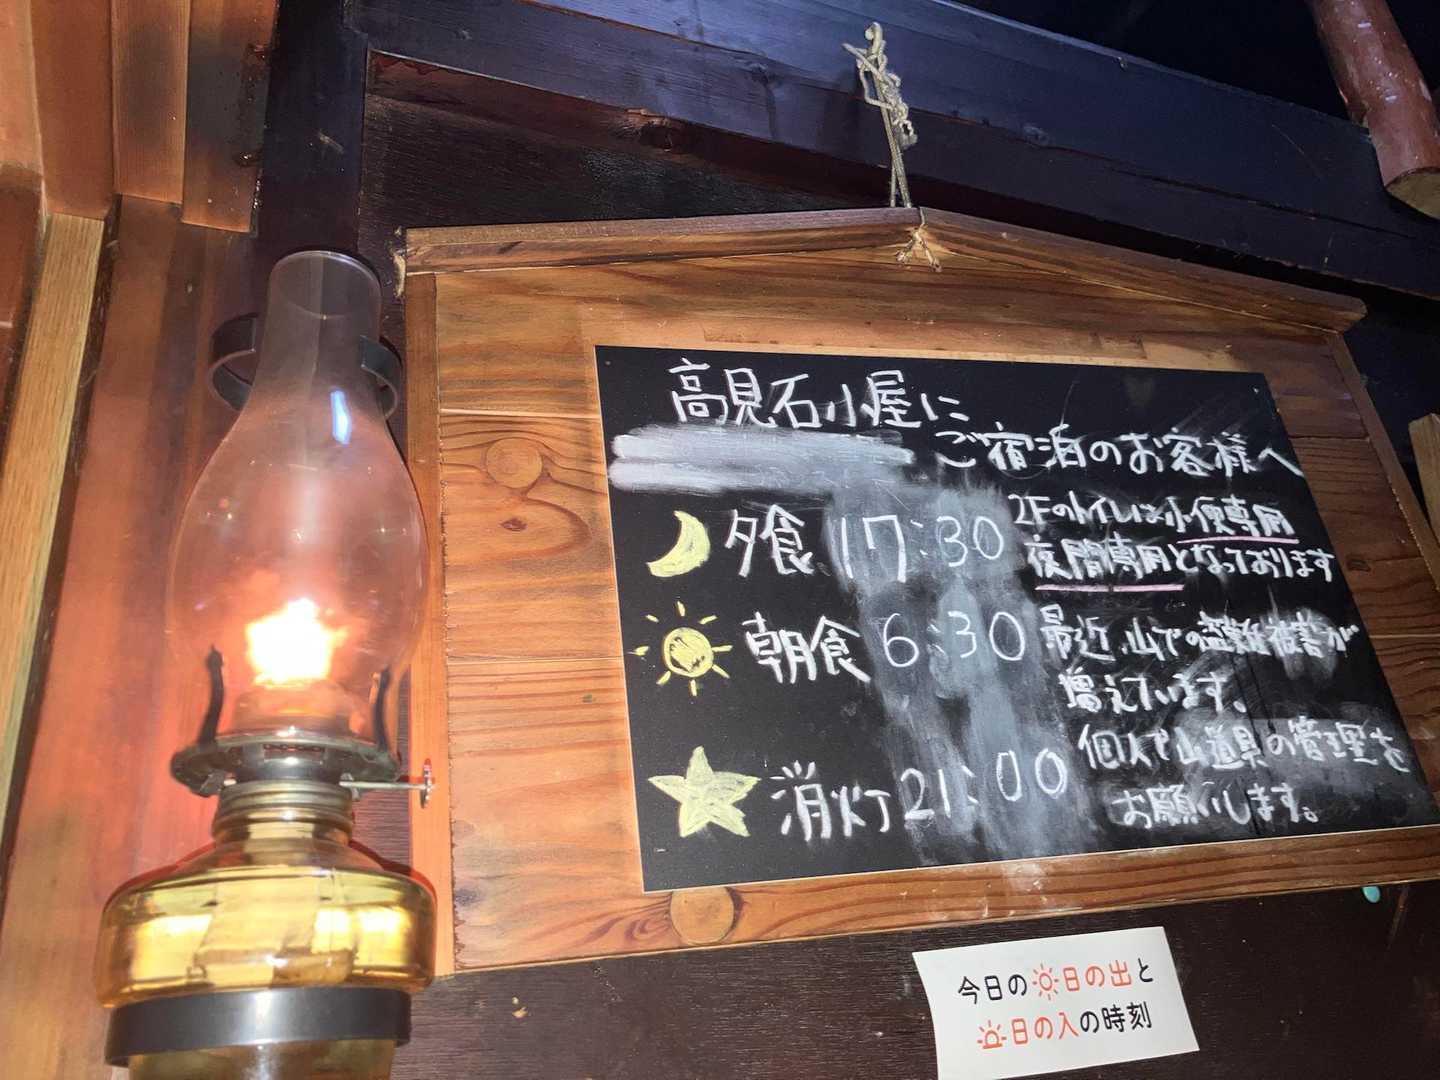 高見石小屋に
ご宿泊のお客様へ
夕食 17:30
朝食 6:30
消灯 21:00
2Fのトイレは小便専用
夜間専用となっております
最近、山での盗難被害が
増えています。
個人で山道具の管理を
お願いします。
今日の日の出と
日の入の時刻